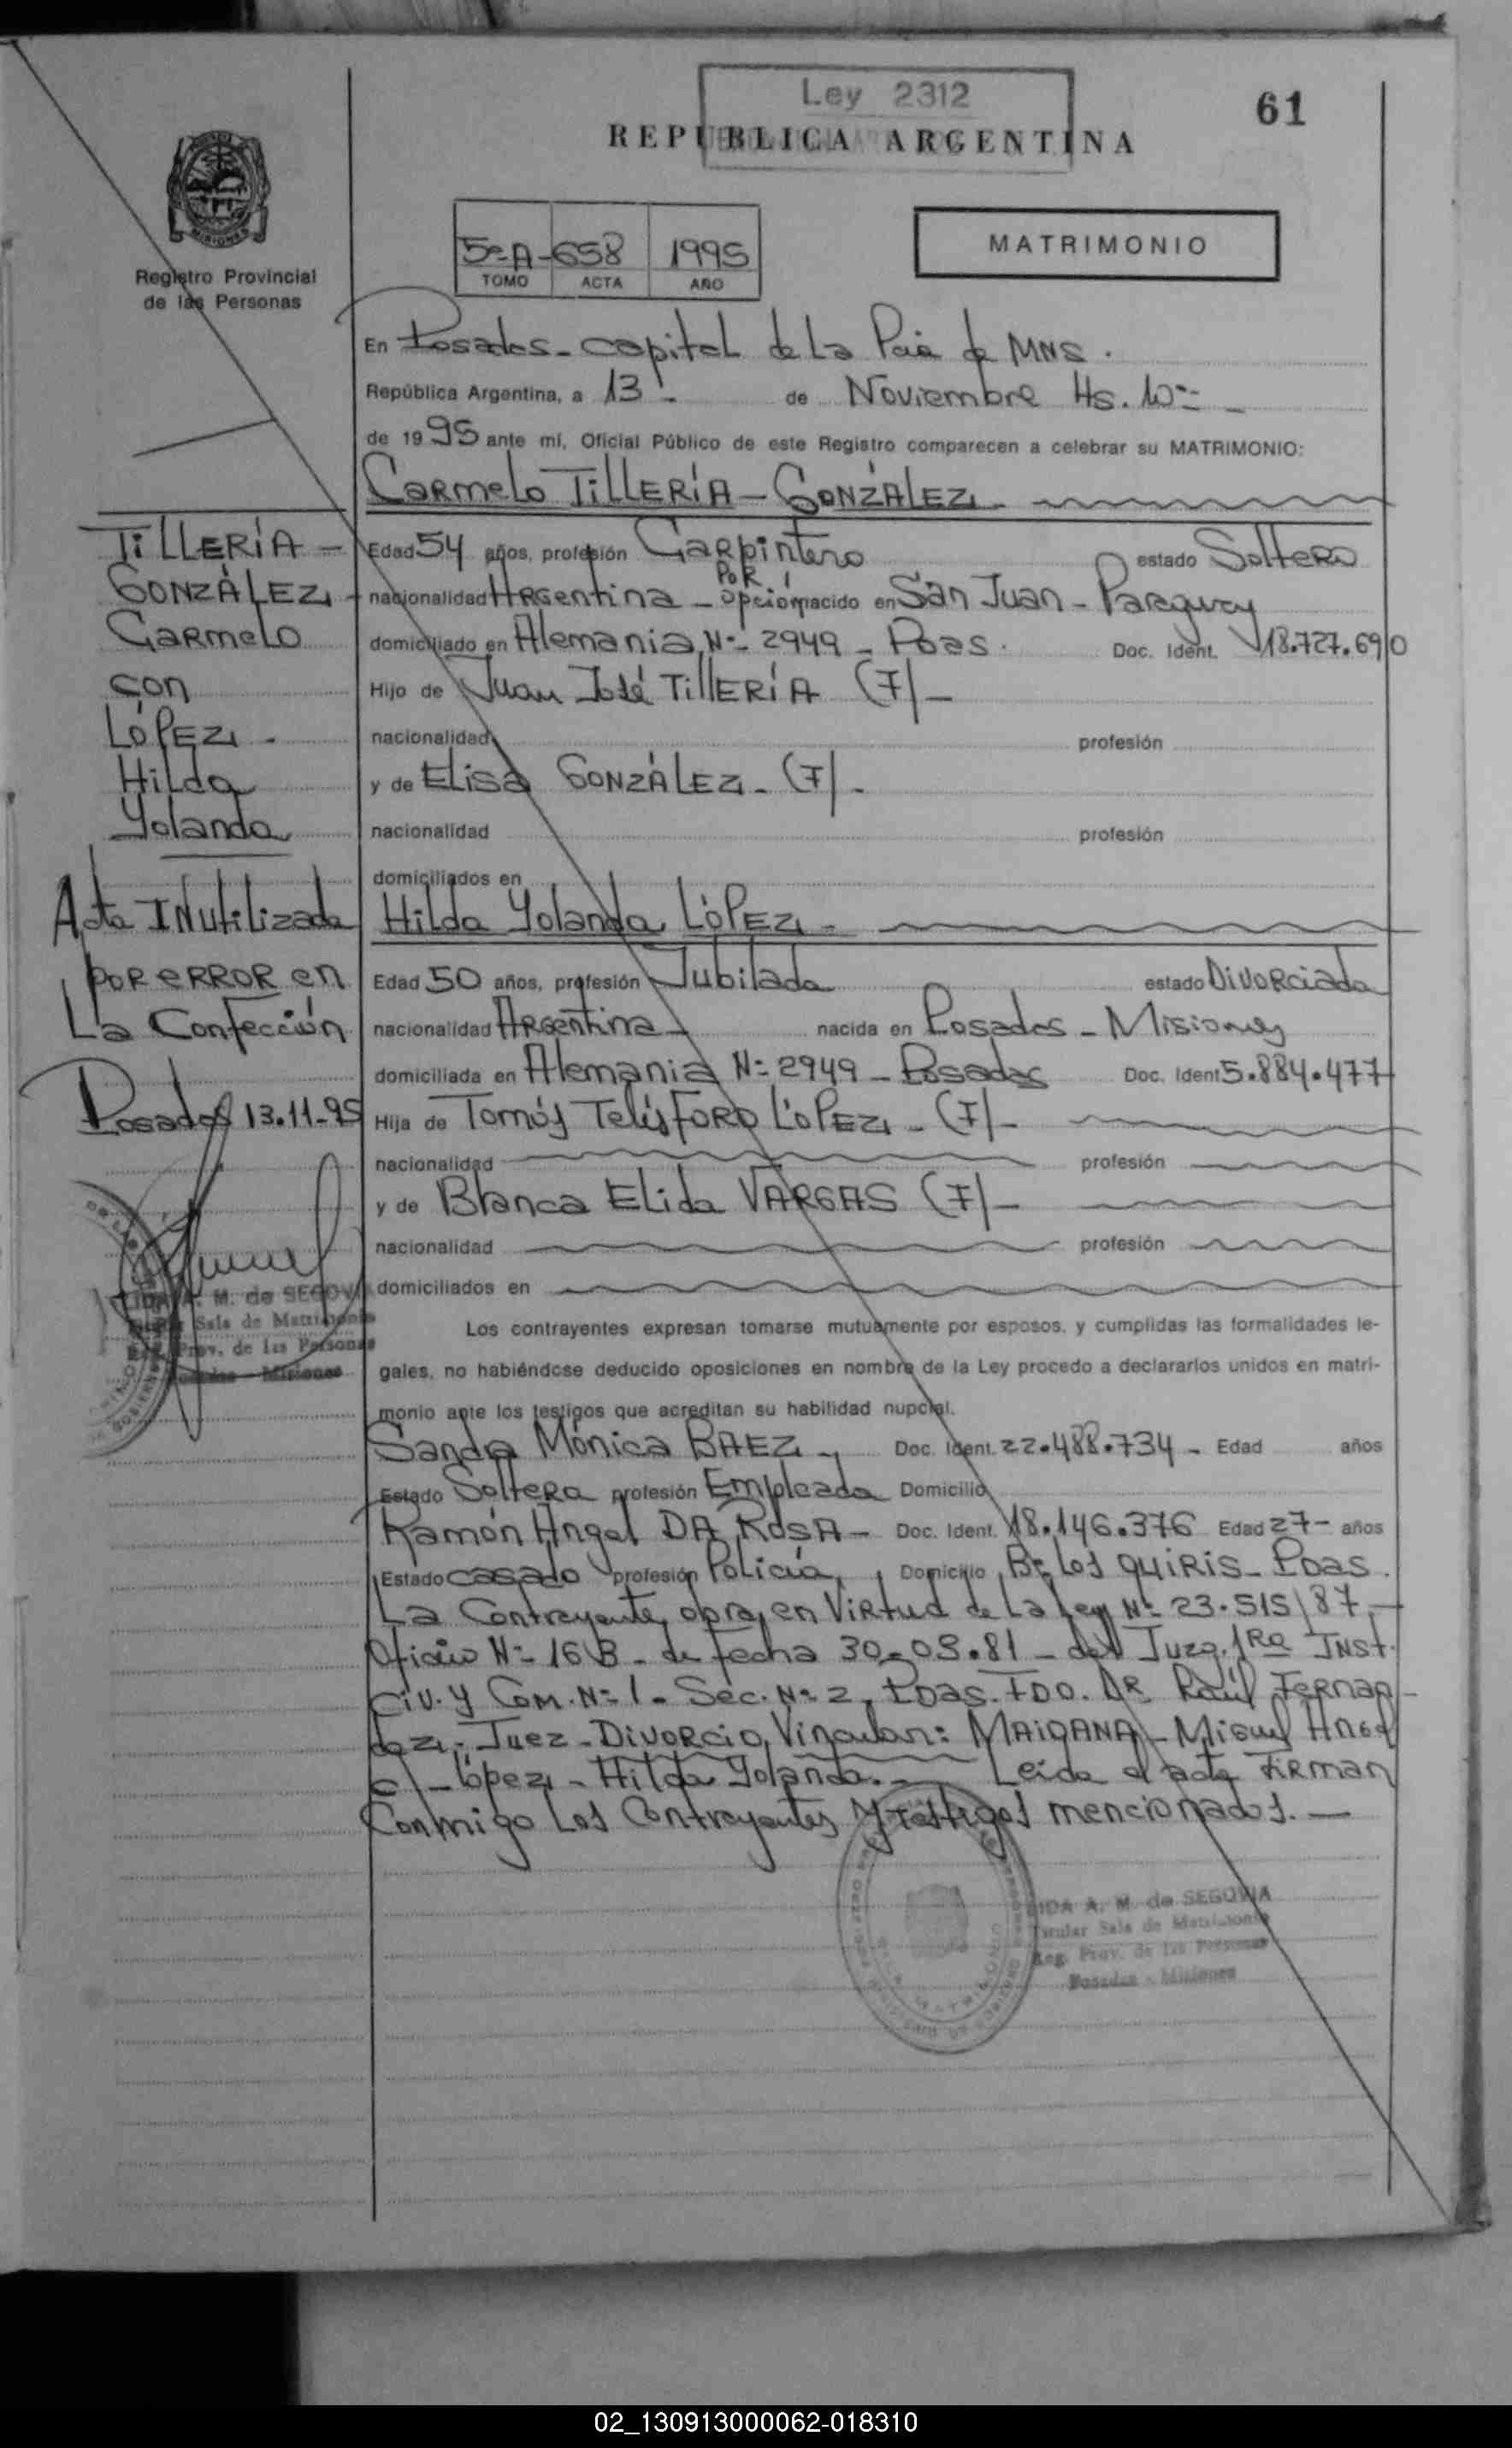 Ley 2312
61
REPUBLICA ARGENTINA
MISIONES
Registro Provincial
de las Personas
5º-A-658 1995
TOMO ACTA AÑO
MATRIMONIO
En Posadas - capital de La Pcia de MNS.
República Argentina, a 13. de Noviembre Hs. 10=
de 1995 ante mí, Oficial Público de este Registro comparecen a celebrar su MATRIMONIO:
Carmelo TILLERÍA - GONZÁLEZ
TILLERÍA -
GONZÁLEZ -
Carmelo
con
LÓPEZ -
Hilda
Yolanda
Acta Inutilizada
por error en
La Confección
Posadas 13.11-95
LIDA A. M. de SEGOVIA
Sala de Matrimonio
Reg. Prov. de las Personas
Posadas - Misiones
Edad 54 años, profesión Carpintero estado Soltero
Por
nacionalidad Argentina - opción nacido en San Juan - Paraguay
domiciliado en Alemania Nº 2949 - Pdas. Doc. Ident. 18.727.690
Hijo de Juan José TILLERÍA (F) -
nacionalidad profesión
y de Elisa GONZÁLEZ - (F) -
nacionalidad profesión
domiciliados en
Hilda Yolanda LÓPEZ -
Edad 50 años, profesión Jubilada estado Divorciada
nacionalidad Argentina - nacida en Posadas - Misiones
domiciliada en Alemania Nº 2949 - Posadas Doc. Ident 5.884.477
Hija de Tomás Telésforo LÓPEZ - (F) -
nacionalidad profesión
y de Blanca Elida VARGAS (F) -
nacionalidad profesión
domiciliados en
Los contrayentes expresan tomarse mutuamente por esposos, y cumplidas las formalidades le-
gales, no habiéndose deducido oposiciones en nombre de la Ley procedo a declararlos unidos en matri-
monio ante los testigos que acreditan su habilidad nupcial.
Sandra Mónica BAEZ - Doc. Ident. 22.488.734 - Edad años
Estado Soltera profesión Empleada Domicilio
Ramón Angel DA ROSA - Doc. Ident. 18.146.376 Edad 27- años
Estado casado profesión Policía, Domicilio Bº Los QUIRIS - Pdas.
La Contrayente, obra, en Virtud de La Ley Nº 23.515/87, -
Oficio Nº 168 - de fecha 30-03.81 - del Juzg. 1Ra INST.
Civ. y Com. Nº 1 - Sec. Nº 2, Pdas. FDO. DR. Raúl Fernan-
dez - Juez - Divorcio Vincular: MAIDANA - Miguel Angel
c/ - López - Hilda Yolanda. - Leída el acta FIRMAN
Conmigo Los Contrayentes y testigos mencionados. -
LIDA A. M. de SEGOVIA
Titular Sala de Matrimonio
Reg. Prov. de las Personas
Posadas - Misiones
02_130913000062-018310